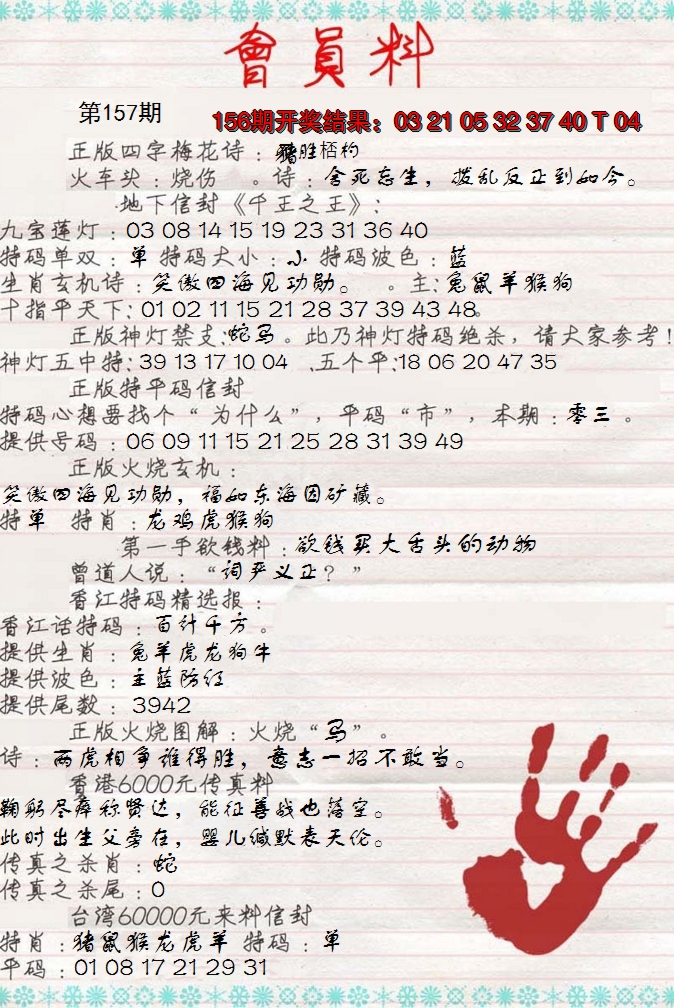 會員料
第157期
156期开奖结果：03 21 05 32 37 40 T 04
正版四字梅花诗：猪胜梧杓
火车头：烧伤 。诗：舍死忘生，拨乱反正到如今。
地下信封《千王之王》：
九宝莲灯：03 08 14 15 19 23 31 36 40
特码单双：单 特码大小：小 特码波色：蓝
生肖玄机诗：笑傲四海见功勋。 。主：兔鼠羊猴狗
十指平天下：01 02 11 15 21 28 37 39 43 48。
正版神灯禁支：蛇马。此乃神灯特码绝杀，请大家参考！
神灯五中特：39 13 17 10 04 、五个平：18 06 20 47 35
正版特平码信封
特码心想要找个“为什么”，平码“市”，本期：零三 。
提供号码：06 09 11 15 21 25 28 31 39 49
正版火烧玄机：
笑傲四海见功勋，福如东海因矿藏。
特单 特肖：龙鸡虎猴狗
第一手欲钱料：欲钱买大舌头的动物
曾道人说：“词严义正？”
香江特码精选报：
香江话特码：百计千方 。
提供生肖：兔羊虎龙狗牛
提供波色：主蓝防红
提供尾数：3942
正版火烧图解：火烧“马”。
诗：两虎相争谁得胜，意志一招不敢当。
香港6000元传真料
鞠躬尽瘁称贤达，能征善战也落空。
此时出生父旁在，婴儿缄默表天伦。
传真之杀肖：蛇
传真之杀尾：0
台湾60000元来料信封
特肖：猪鼠猴龙虎羊 特码：单
平码：01 08 17 21 29 31